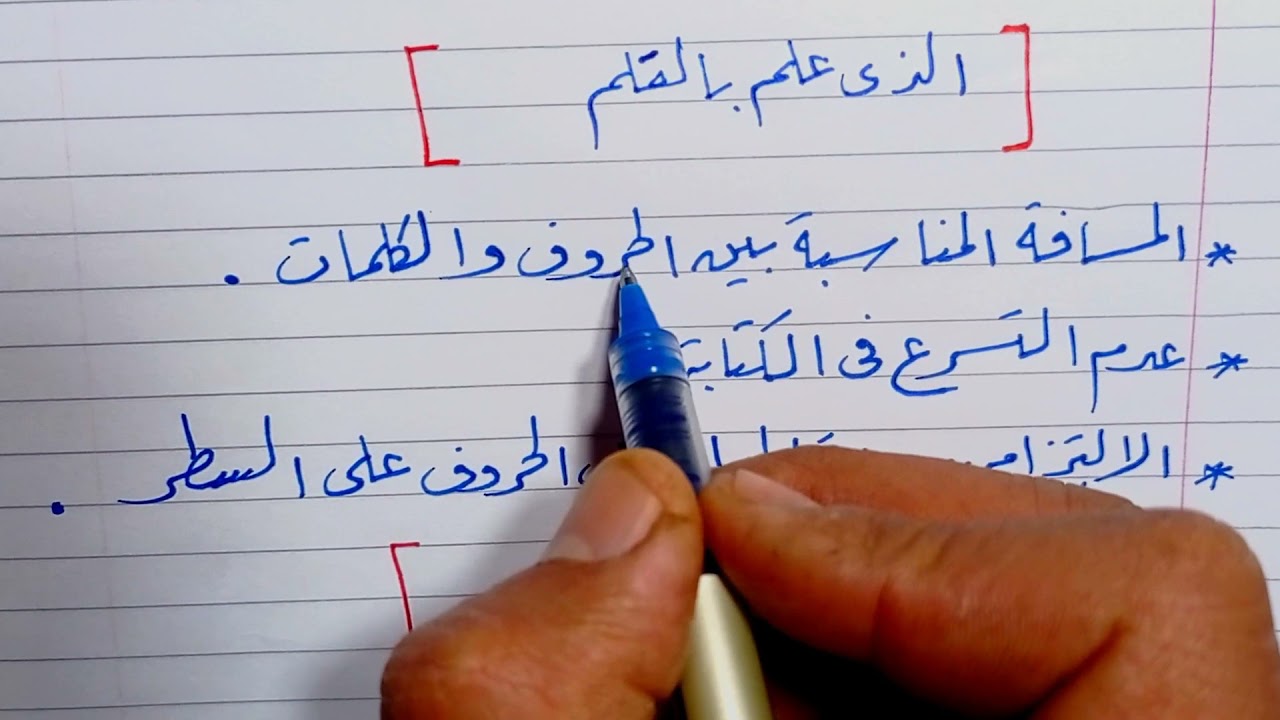 الذى علم بالقلم
* المسافة المناسبة بين الحروف والكلمات .
* عدم التسرع فى الكتابة
* الالتزام الحروف على السطر .